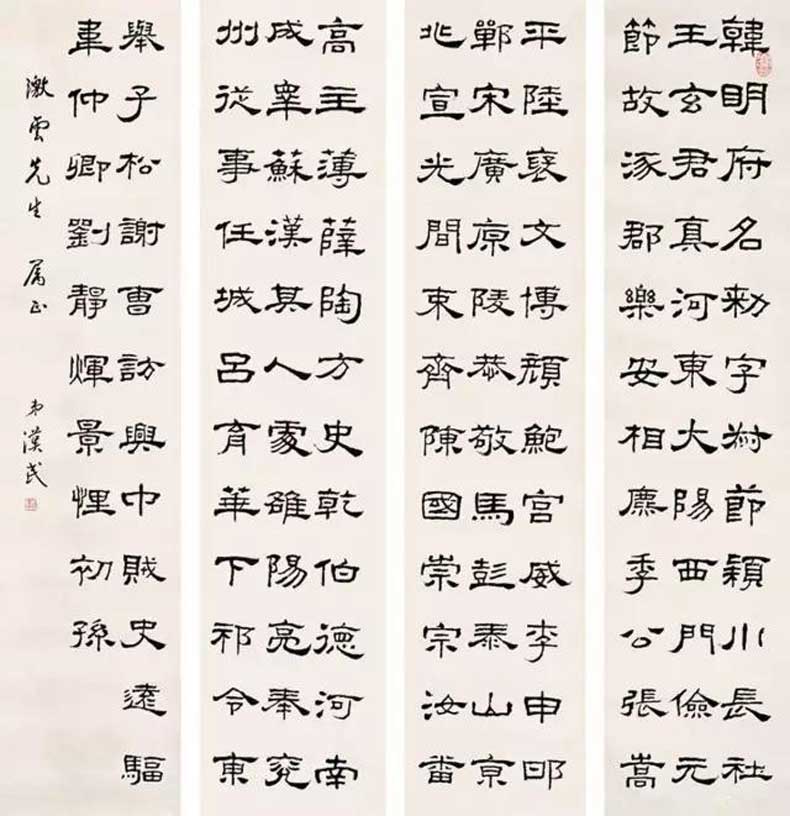 韓明府名勑字叔節潁川長社
王玄君真河東大陽西門儉元
節故涿郡樂安相麃季公張嵩
平陸裦文博顏鮑宮威李申邯
鄲宋廣原陵恭敬馬彭泰山亰
北宣光間束齊陳國崇宗汝番
高主薄薛陶方史乾伯德河南
成辜蘇漢其人處雒陽亮奉兖
州從事任城呂育華下祁令東
舉子松謝曹訪興中賊史遠驅
車仲卿劉靜煇景悝初孫
澂雲先生 屬正 弟漢民